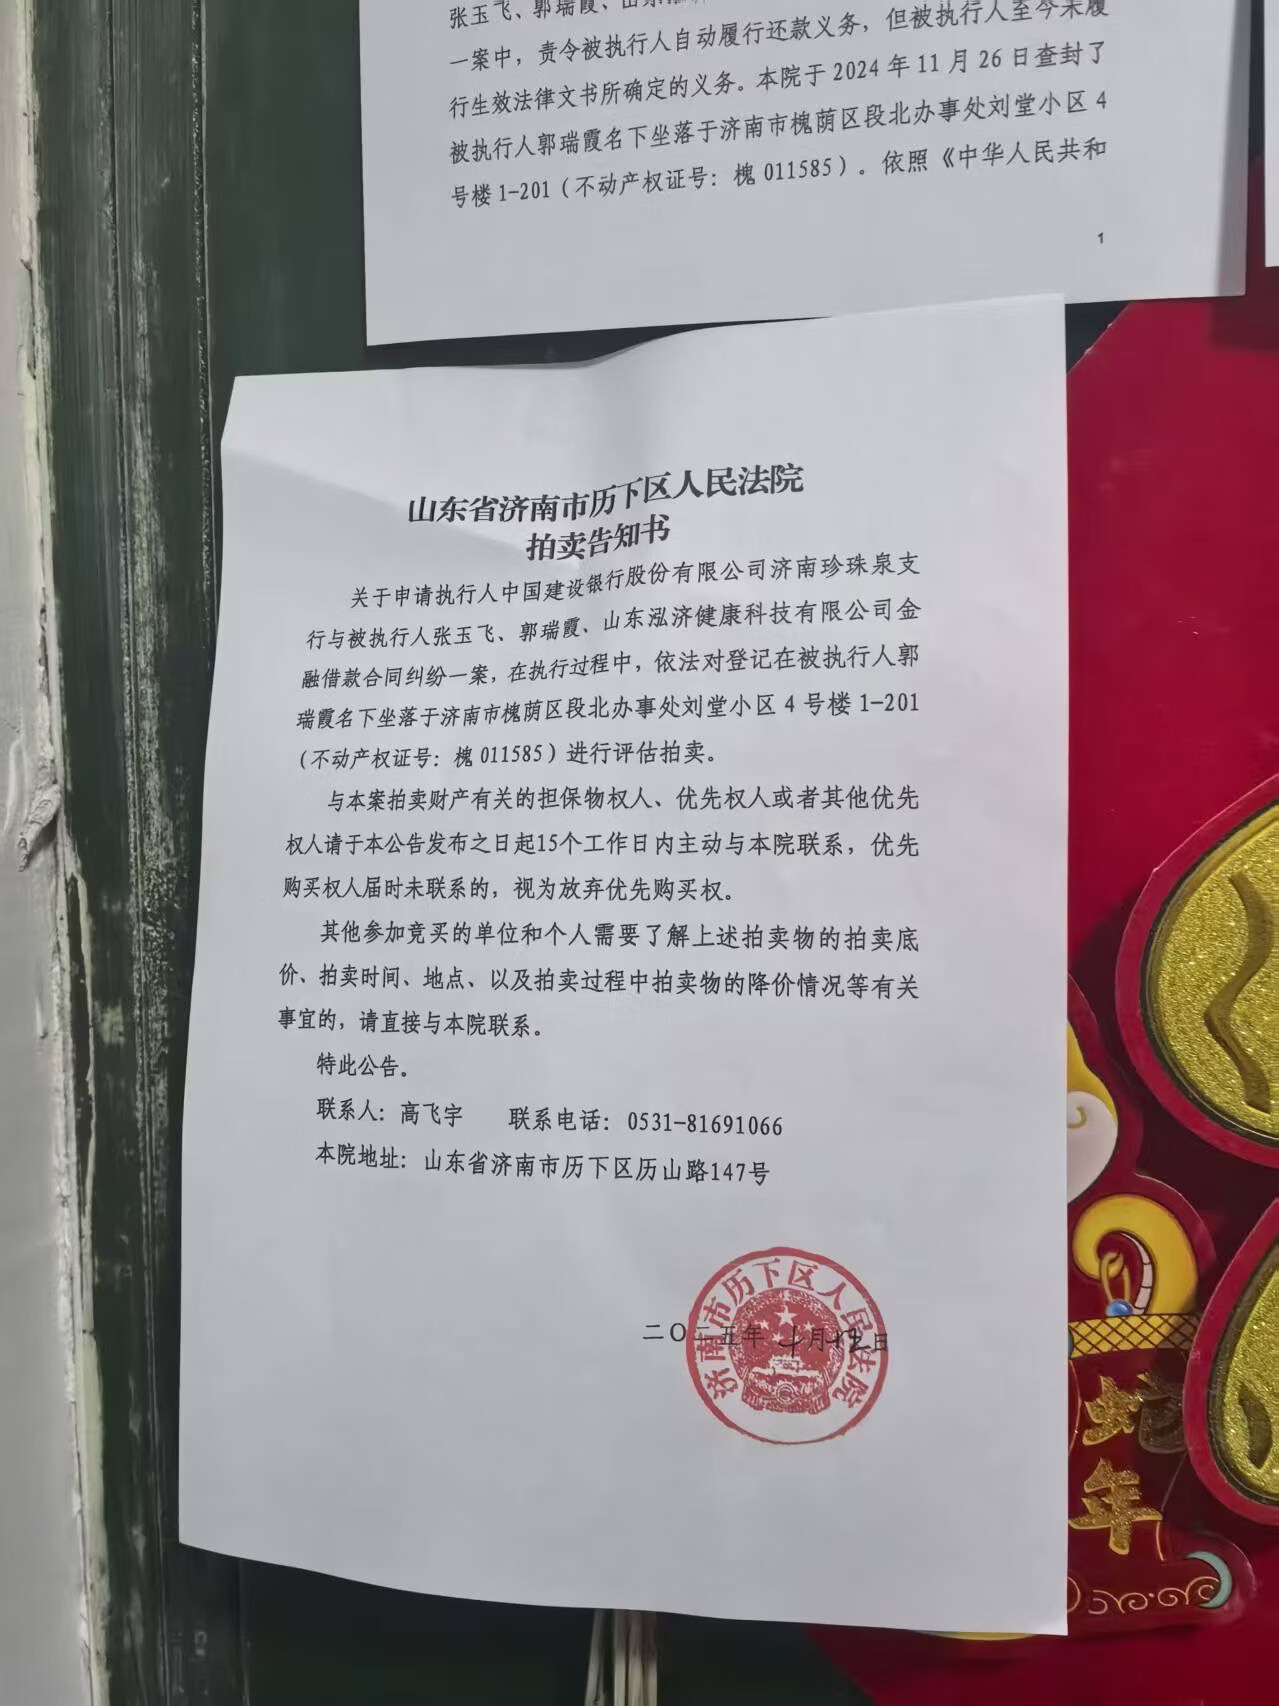 张玉飞、郭瑞霞、山东泓
一案中，责令被执行人自动履行还款义务，但被执行人至今未履
行生效法律文书所确定的义务。本院于 2024 年 11 月 26 日查封了
被执行人郭瑞霞名下坐落于济南市槐荫区段北办事处刘堂小区 4
号楼 1-201（不动产权证号：槐 011585）。依照《中华人民共和
1
山东省济南市历下区人民法院
拍卖告知书
关于申请执行人中国建设银行股份有限公司济南珍珠泉支
行与被执行人张玉飞、郭瑞霞、山东泓济健康科技有限公司金
融借款合同纠纷一案，在执行过程中，依法对登记在被执行人郭
瑞霞名下坐落于济南市槐荫区段北办事处刘堂小区 4 号楼 1-201
（不动产权证号：槐 011585）进行评估拍卖。
与本案拍卖财产有关的担保物权人、优先权人或者其他优先
权人请于本公告发布之日起15个工作日内主动与本院联系，优先
购买权人届时未联系的，视为放弃优先购买权。
其他参加竞买的单位和个人需要了解上述拍卖物的拍卖底
价、拍卖时间、地点、以及拍卖过程中拍卖物的降价情况等有关
事宜的，请直接与本院联系。
特此公告。
联系人：高飞宇 联系电话：0531-81691066
本院地址：山东省济南市历下区历山路147号
二〇二五年 十月 日
济南市历下区人民法院
蛇年